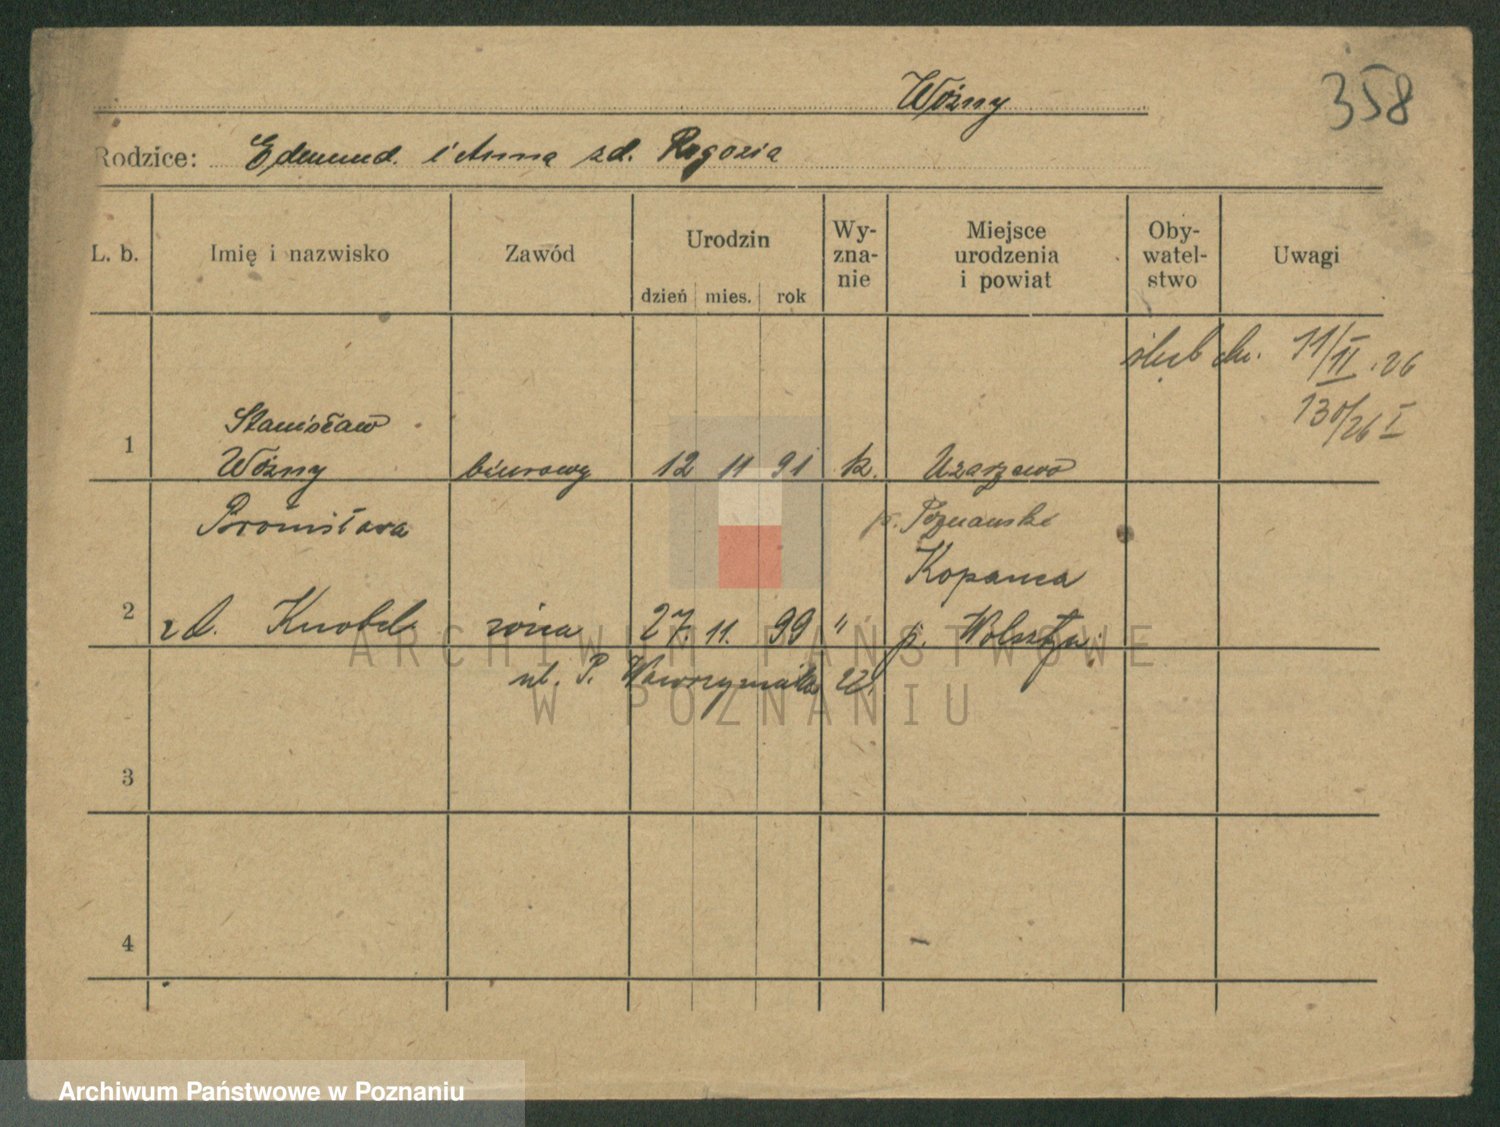 Woźny
358
Rodzice: Edmund i Anna zd. Rogozia
L. b. Imię i nazwisko Zawód Urodzin dzień mies. rok Wy-zna-nie Miejsce urodzenia i powiat Oby-watel-stwo Uwagi
ślub dn. 11/II.26
130/26 I
Stanisław
1 Woźny biurowy 12 11 91 k. Uzarzewo
Bronisława p. Poznański
Kopanica
2 zd. Knobel żona 27. 11. 99 " p. Wolsztyn
ul. P. Wawrzyniaka 22
3
4
ARCHIWUM PAŃSTWOWE
W POZNANIU
Archiwum Państwowe w Poznaniu